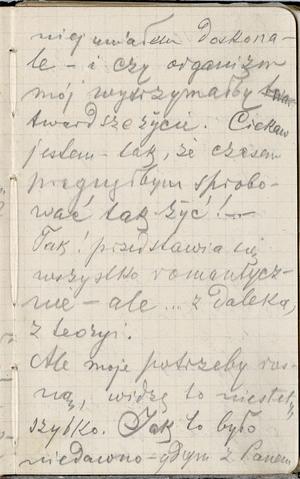 niej umiałem doskona-
le – i czy organizm
mój wytrzymałby
twardsze życie. Ciekaw
jestem – tak, że czasem
pragnąłbym sprobo-
wać tak żyć! –
Tak! przedstawia się
wszystko romantycz-
nie – ale ... z daleka,
z teoryi.
Ale moje potrzeby ros-
ną, widzę to niestety
szybko. Jak to było
niedawno – gdym z Panem